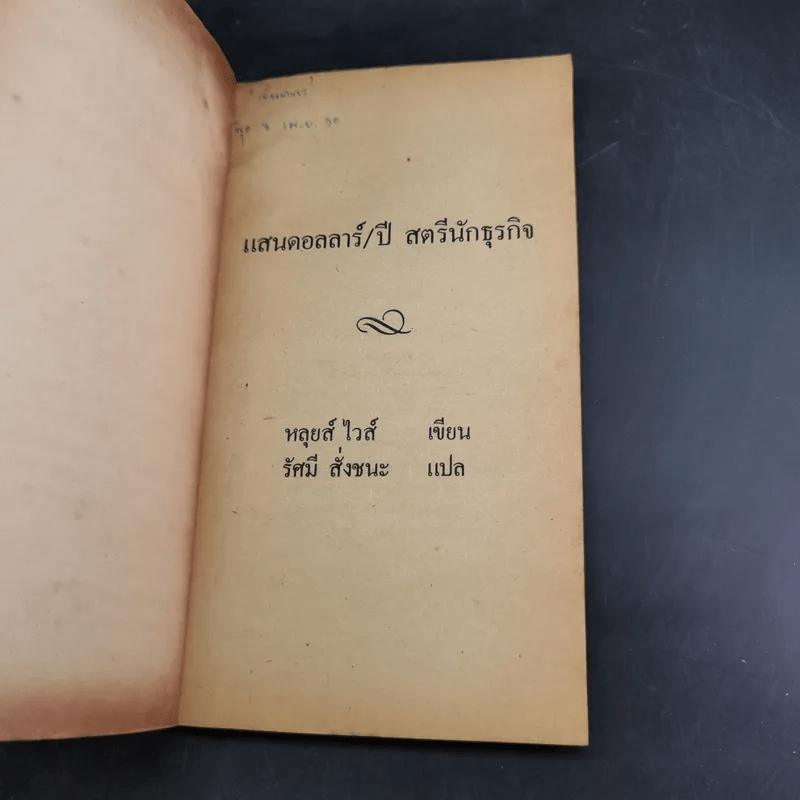 แสนดอลลาร์/ปี สตรีนักธุรกิจ
หลุยส์ ไวส์ เขียน
รัศมี สั่งชนะ แปล